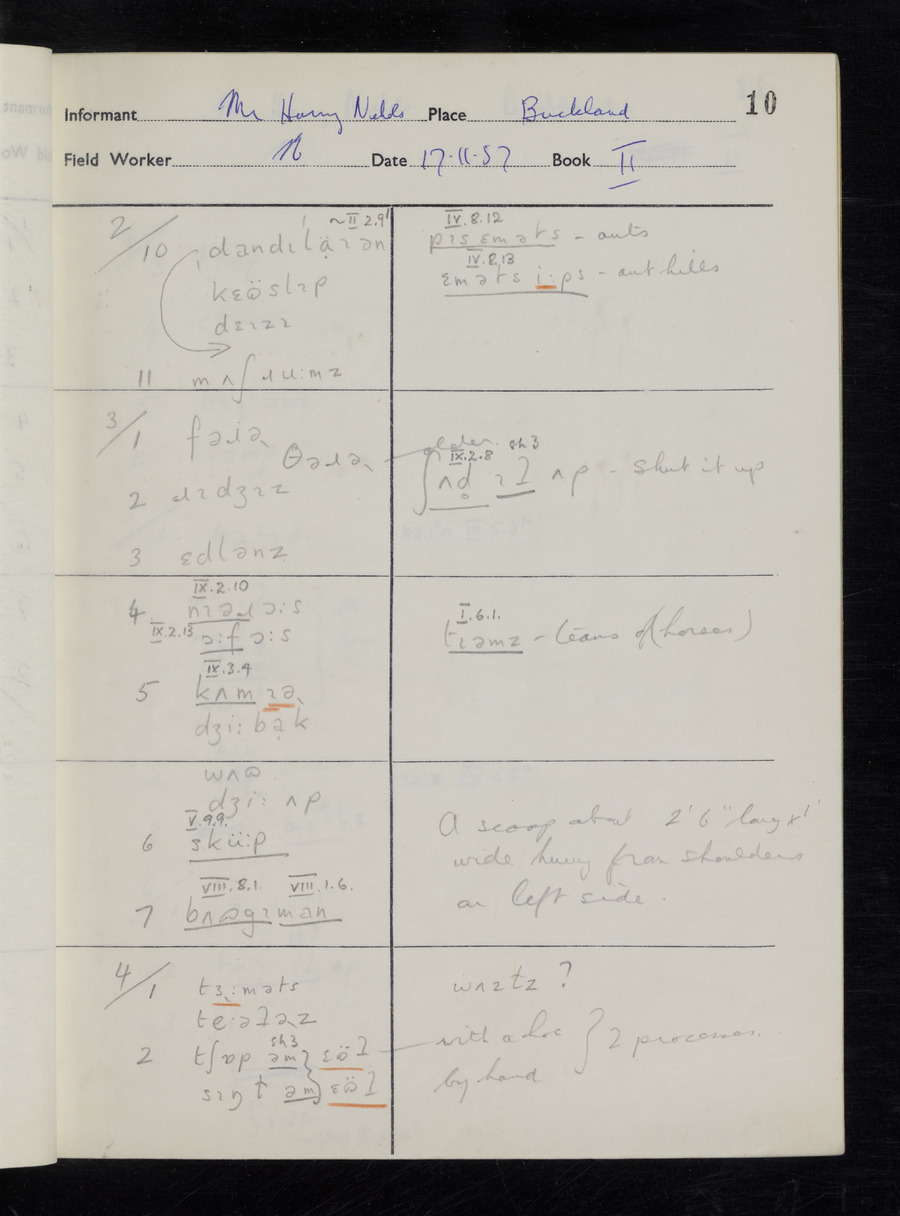 Informant Mr Harry Nelds Place Buckland 10
Field Worker Date 17·11·57 Book II
2/10 ~II 2.9
dandɩlạ̈ɹən
kɛɷ̈slɩp
dɛɪzɪ
11 mʌʃɹu:mz
IV.8.12
pɪsɛməts - ants
IV.8.13
ɛməts i·ps - ant hills
3/1 fəɹə̣
θəɹə̣ older
2 ɹɪdʒɪz
3 ɛdlənz
IX.2.8 sh3
ʃʌd̥ ɪt ʌp - shut it up
IX.2.10
4 nɪəɹ ɔ:s
IX.2.13 ɔ:f ɔ:s
IX.3.4
5 kʌm ɪə̣
dʒi: bạk
I.6.1.
tɪəmz - teams of (horses)
wʌɷ
dʒi: ʌp
V.9.9.
6 skü:p
VIII.8.1. VIII.1.6.
7 bʌɷgɪmən
A scoop about 2'6" long x 1'
wide hung from shoulders
on left side.
4/1 tɜ̣:məts
wʌzɫz ?
2 sh3
tʃɒp əm} ɛɷ̈t with a hoe
sɪŋɫ əm} ɛɷ̈t by hand
} 2 processes.